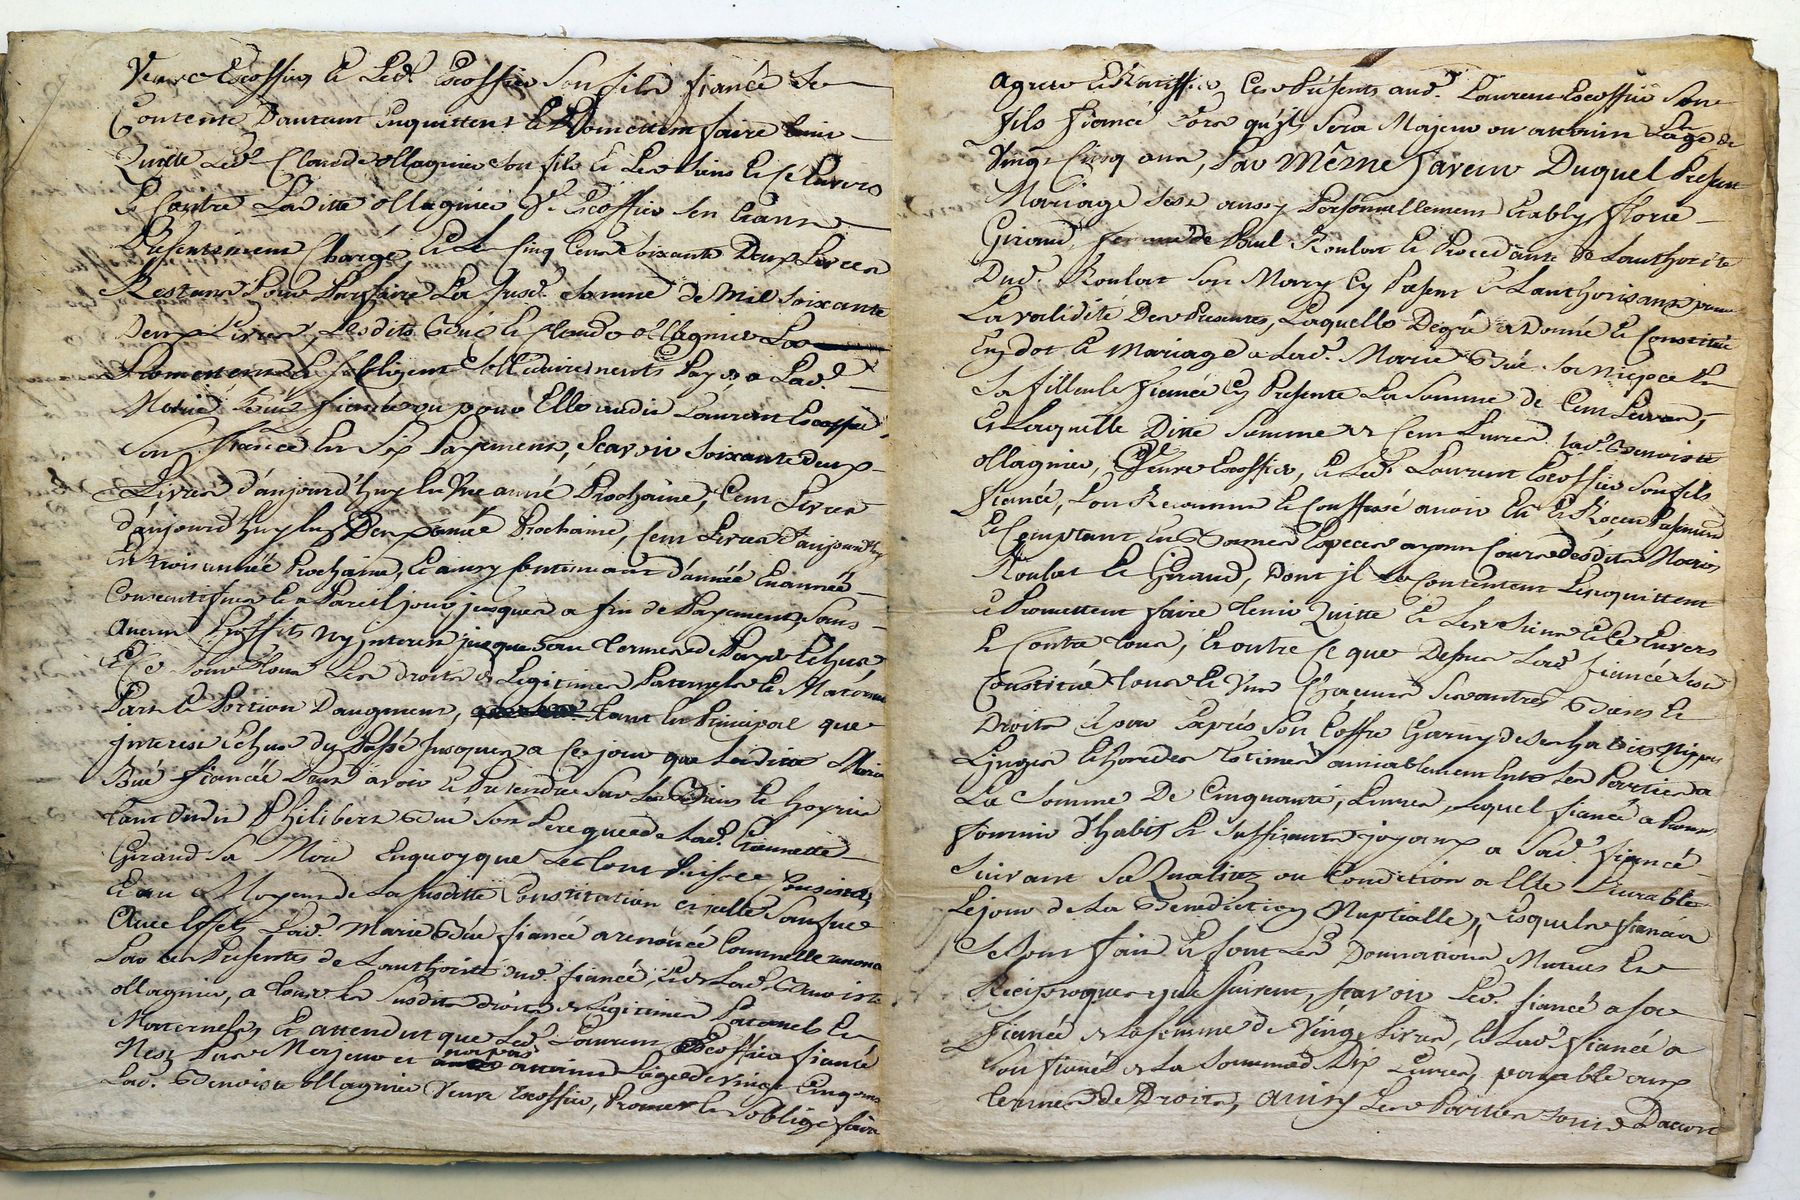 Veuve Escoffier, et Led. Escoffier son fils fiancé se
Contente Dautant Enquittent et Promettent faire tenir
Quitte Led. Claude ollagnier son fils et Les siens et ce Envers
et Contre Laditte ollagnier Ve. Escoffier sen Etant
Presentement Chargé, et Les Cinq Cens soixante Deux Livres
Restant Pour Parfaire La susd. somme de Mil soixante
Deux Livres, Lesdits Gué et Claude ollagnier Les
Promettent et sobligent sollidairements Payer a Lad.
Marie Gué fiancée ou pour Elle audit Laurent Escoffier,
Son fiancé En six Payements, scavoir soixante deux
Livres d'aujourd'huy En Une année Prochaine, Cent Livres
d'aujourd'huy En Deux année Prochaine, Cent Livres d'aujourd'huy
En trois année Prochaine, et ainsy Continuant d'année En année
Consecutifves et a Pareil jour jusques a fin de Payement, sans
aucun Proffits ny jnterest jusques au termes de Paye Echus
Et Ce Pour Tous Les droits de Legitimes Paternels et Maternels
Part et Portion Daugment, tant En Principal que
jnterest Echus du Passé Jusques a Ce jour que Laditte Marie
Gué fiancée Peut avoir et Pretendre sur Les Biens et hoyrie
tant dudit Philibert Gué son Pere que de Lad. Etiennette
Giraud Sa Mere Enquoy que Le tout Puisse Consister,
Et au Moyen de La susditte Constitution et icelle sans
autre Effet, Lad. Marie Gué fiancée a renoncé Comme Elle renonce
Par Les Presentes de Lauthorité dud. fiancé, et de Lad. Benoiste
ollagnier, a tous Les susdits droits de Legitimes Paternels et
Maternels, Et attendu que Led. Laurent Escoffier fiancé
Nest Pas Majeur et na pas atteint Lage de Vingt Cinq ans
Lad. Benoiste ollagnier Veuve Escoffier, Promet et soblige faire
agreer et Rattiffier Ces Présents aud. Laurent Escoffier Son
fils fiancé Lors qu'il sera Majeur ou atteint Lage de
Vingt Cinq ans, Par Même faveur Duquel Present
Mariage sest aussy Personnellement Etably, Florie
Giraud femme de Paul Roulat et Procedante de Lauthorité
Dud. Roulat son Mary Cy Present et Lauthorisant pour
La validité Des Presentes, Laquelle Degré a Donné et Constitué
En dot et Mariage a Lad. Marie Gué sa niepce et
sa filleule fiancée Cy Presente La Somme de Cent Livres,
Et Laquelle Ditte Somme de Cent Livres Lad. Benoiste
ollagnier, Veuve Escoffier, et Led. Laurent Escoffier son fils
fiancé, L'on Reconnu et Confessé avoir Eu et Receu Presentement
et Comptant En Bonnes Especes ayant Cours desdits Mariés
Roulat et Giraud, Dont jl se Contentent Lesquittent
et Promettent faire tenir Quitte et Les Siens et Ce Envers
et Contre tous, Et outre Ce que Dessus Lad. fiancée sest
Constitué tous et Uns Chacuns ses autres Biens et
Droits et par Exprés son Coffre Garny de ses habits Nippes
Linges et hardes Estimés amiablement Entre Les Parties a
La Somme De Cinquante, Livres, Lequel fiancé a Promis
Fournir d'habits et Suffisants joyaux a Sad. fiancée
suivant Sa Qualitez ou Condition a Elle Livrable
Lejour de La Benediction Nuptialle, Lesquels fiancés
se sont faits et font Les Donnations Mutues et
Reciproques qui suivent, scavoir Led. fiancé a sa
fiancée de La somme de Vingt Livres, et Lad. fiancée a
son fiancé de La Somme de Dix Livres, payable aux
termes de Droits, ainsy Les Parties sont D'accord